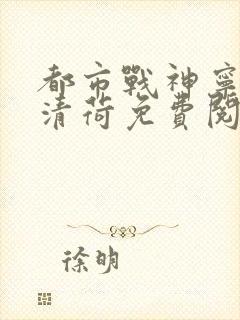 都市戰神寧
清荷免費閱
徐明